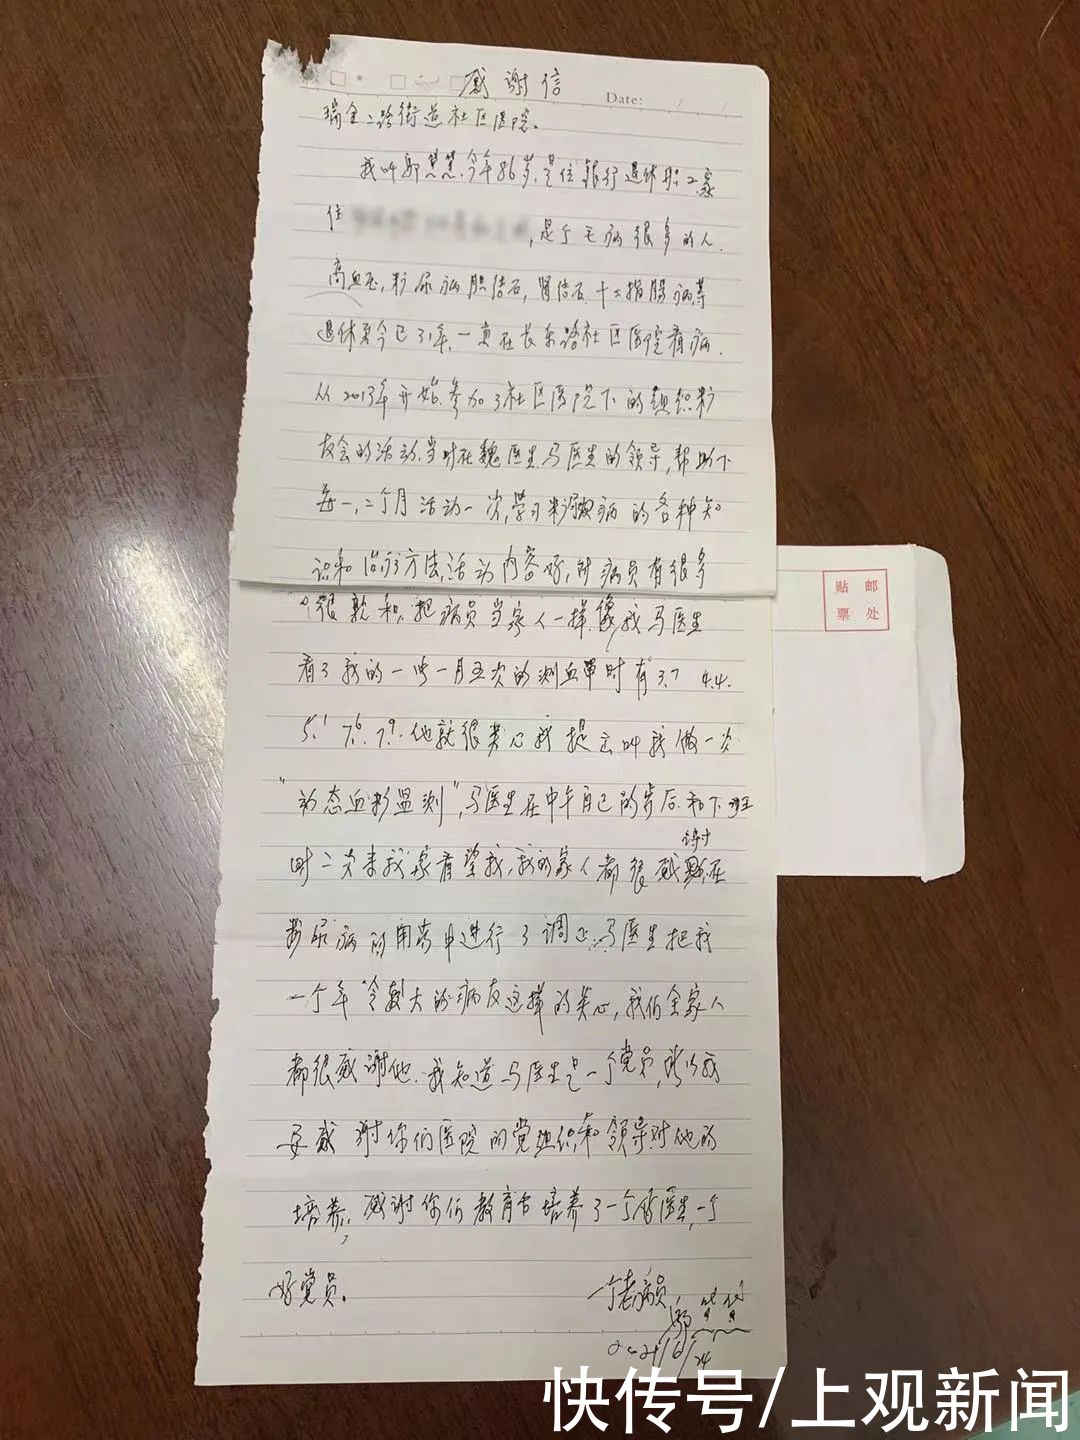 感谢信
Date: / /
瑞金二路街道社区医院。
我叫郭慧慧,今年86岁,是位银行退休职工,家
住 ,是个毛病很多的人.
高血压,糖尿病胆结石,肾结石,十二指肠病等
退休至今已31年,一直在长乐路社区医院看病.
从2013年开始.参加了社区医院下的组织糖
友会的活动.当时在魏医生马医生的领导,帮助下
每一,二个月活动一次,学习糖尿病的各种知
识和治疗方法,活动内容好,对病员有很多
很亲和.把病员当家人一样.像我马医生
看了我的一张一月五次的测血单时有"3.7 4.4.
5.1 7.6. 7.9.他就很关心我提出叫我做一次
"动态血糖监测",马医生在中午自己的 后.和下班
时二次来我家看望我,我的家人都很感谢.在
糖尿病的用药中进行了调正.马医生把我
一个年令较大的病友这样的关心,我们全家人
都很感谢他.我知道马医生是一个党员,所以我
要感谢你们医院的党组织和领导对他的
培养,感谢你们教育培养了一个好医生,一个
好党员.
一个老病员
郭慧慧
2021/6/24
贴 邮
票 处
快传号/上观新闻